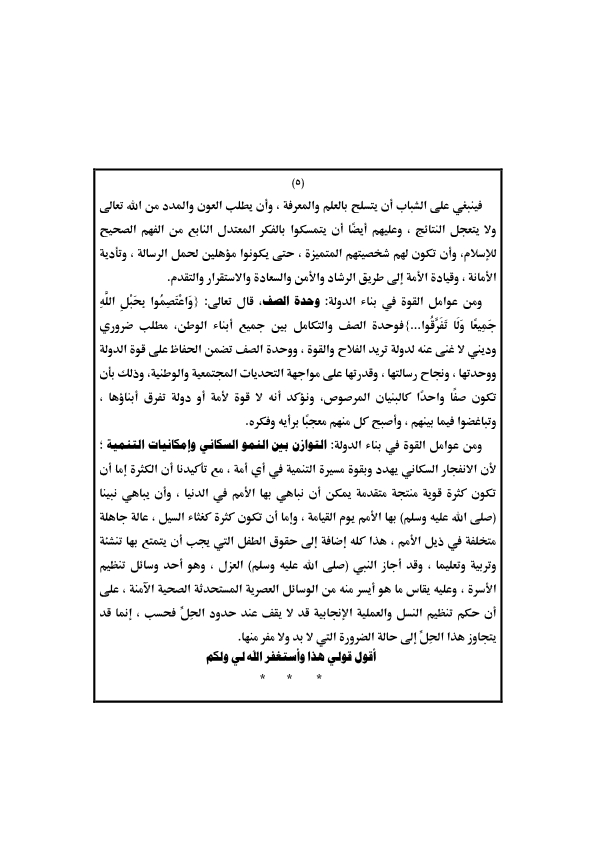 (٥)
فينبغي على الشباب أن يتسلح بالعلم والمعرفة ، وأن يطلب العون والمدد من الله تعالى
ولا يتعجل النتائج ، وعليهم أيضًا أن يتمسكوا بالفكر المعتدل النابع من الفهم الصحيح
للإسلام، وأن تكون لهم شخصيتهم المتميزة ، حتى يكونوا مؤهلين لحمل الرسالة ، وتأدية
الأمانة ، وقيادة الأمة إلى طريق الرشاد والأمن والسعادة والاستقرار والتقدم.
ومن عوامل القوة في بناء الدولة: وحدة الصف، قال تعالى: {وَاعْتَصِمُوا بِحَبْلِ اللَّهِ
جَمِيعًا وَلَا تَفَرَّقُوا...}فوحدة الصف والتكامل بين جميع أبناء الوطن، مطلب ضروري
وديني لا غنى عنه لدولة تريد الفلاح والقوة ، ووحدة الصف تضمن الحفاظ على قوة الدولة
ووحدتها ، ونجاح رسالتها ، وقدرتها على مواجهة التحديات المجتمعية والوطنية، وذلك بأن
تكون صفًا واحدًا كالبنيان المرصوص، ونؤكد أنه لا قوة لأمة أو دولة تفرق أبناؤها ،
وتباغضوا فيما بينهم ، وأصبح كل منهم معجبًا برأيه وفكره.
ومن عوامل القوة في بناء الدولة: التوازن بين النمو السكاني وإمكانيات التنمية ؛
لأن الانفجار السكاني يهدد وبقوة مسيرة التنمية في أي أمة ، مع تأكيدنا أن الكثرة إما أن
تكون كثرة قوية منتجة متقدمة يمكن أن نباهي بها الأمم في الدنيا ، وأن يباهي نبينا
(صلى الله عليه وسلم) بها الأمم يوم القيامة ، وإما أن تكون كثرة كغثاء السيل ، عالة جاهلة
متخلفة في ذيل الأمم ، هذا كله إضافة إلى حقوق الطفل التي يجب أن يتمتع بها تنشئة
وتربية وتعليما ، وقد أجاز النبي (صلى الله عليه وسلم) العزل ، وهو أحد وسائل تنظيم
الأسرة ، وعليه يقاس ما هو أيسر منه من الوسائل العصرية المستحدثة الصحية الآمنة ، على
أن حكم تنظيم النسل والعملية الإنجابية قد لا يقف عند حدود الحِلّ فحسب ، إنما قد
يتجاوز هذا الحِلّ إلى حالة الضرورة التي لا بد ولا مفر منها.
أقول قولي هذا وأستغفر الله لي ولكم
* * *